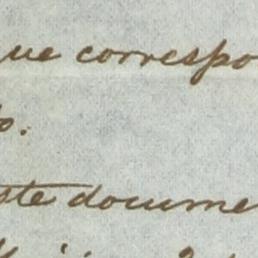 que correspo
o.
ste documen